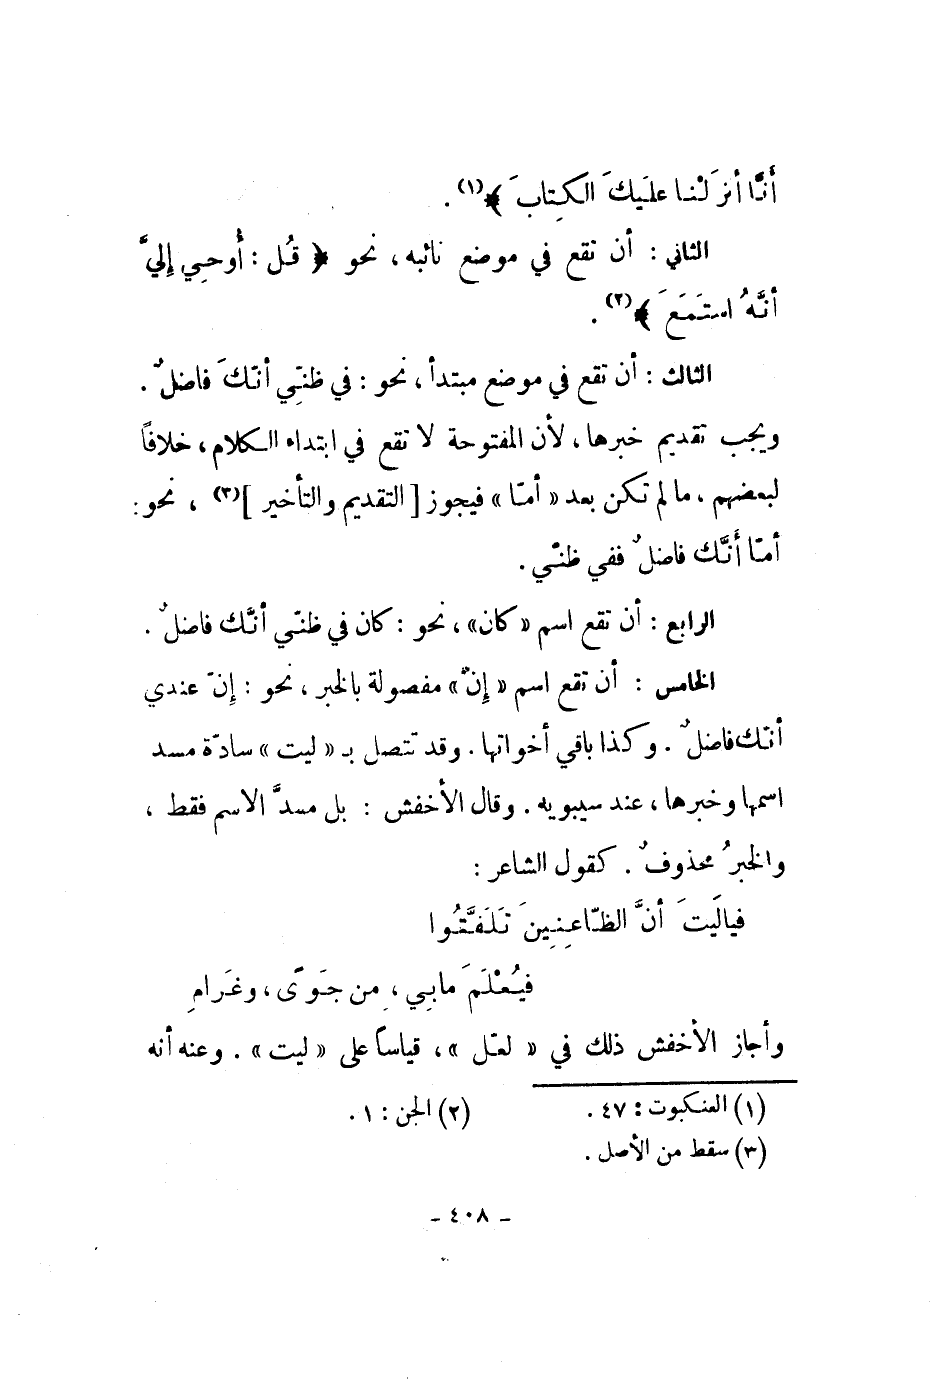 أَنَّا أَنزَلْنا علَيكَ الكِتابَ ﴾(١) .
الثاني : أن تقع في موضع نائبه ، نحو ﴿ قُل : أُوحِي إِليَّ
أنَّهُ استَمَعَ ﴾(٢) .
الثالث : أن تقع في موضع مبتدأ ، نحو : في ظنِّي أنّكَ فاضلٌ .
ويجب تقديم خبرها ، لأن المفتوحة لا تقع في ابتداء الكلام ، خلافًا
لبعضهم ، ما لم تكن بعد « أمّا » فيجوز [ التقديم والتأخير ](٣) ، نحو :
أمّا أَنَّك فاضلٌ ففي ظنّي .
الرابع : أن تقع اسم «كان» ، نحو : كان في ظنّي أنَّك فاضلٌ .
الخامس : أن تقع اسم « إِنّ» مفصولة بالخبر ، نحو : إِنّ عندي
أنّك فاضلٌ . وكذا باقي أخواتها . وقد تتصل بـ « ليت » سادّة مسد
اسمها وخبرها ، عند سيبويه . وقال الأخفش : بل مسدَّ الاسم فقط ،
والخبرُ محذوفٌ . كقول الشاعر :
فيالَيتَ أنَّ الظّاعِنِينَ تَلَفَّتُوا
فيُعْلَمَ مابِي ، مِن جَوًى ، وغَرامِ
وأجاز الأخفش ذلك في « لعلّ » ، قياسًا على « ليت » . وعنه أنه
(١) العنكبوت : ٤٧ . (٢) الجن : ١ .
(٣) سقط من الأصل .
- ٤٠٨ -